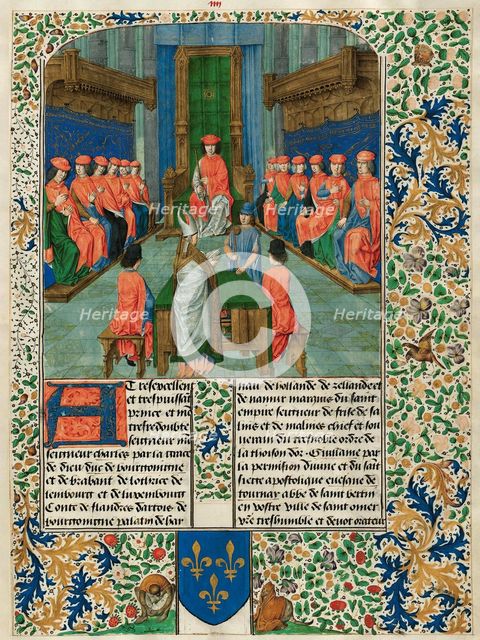 IIII
Heritage Heritage
Heritage Heritage
Heritage Heritage
C
A Tresexcellent
et trespuissant
prince et mon
tresredoubte
seigneur mon
seigneur charles par la grace
de dieu duc de bourgoingne
et de brabant de lothric de
lembourg et de luxembourg
Conte de flandres dartois de
bourgoingne palatin de hay
nau de hollande de zellande et
de namur marquis du saint
empire seigneur de frise de sa
lins et de malines chief et sou
verain du tresnoble ordre de
la thoison dor Guillame par
la permission divine et du saint
siege apostolique evesque de
tournay abbe de saint bertin
en vostre ville de saint omer
vre treshumble et devot orateur